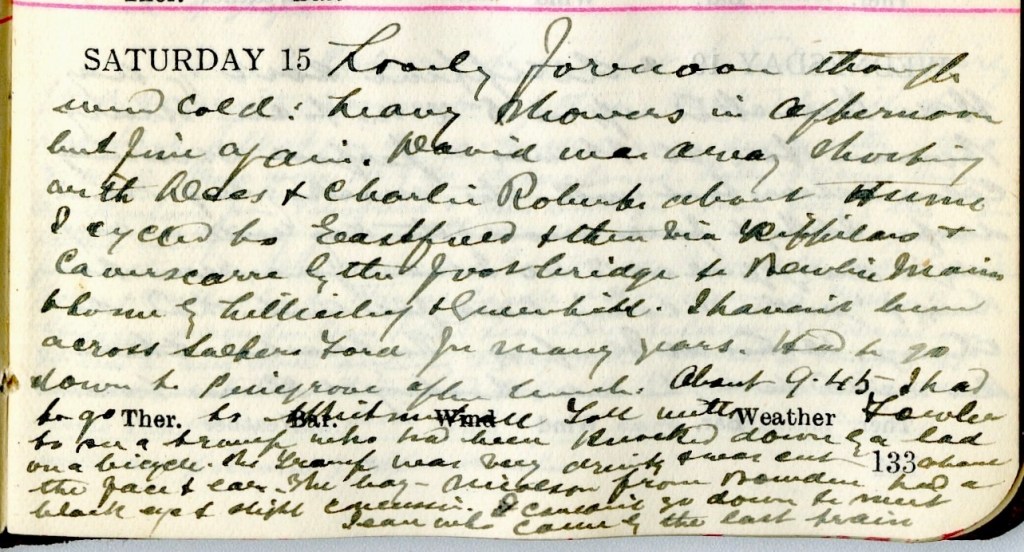 SATURDAY 15 Lovely forenoon though
wind cold: heavy showers in afternoon
but fine again. David was away shooting
with Dees & Charlie Roberts about Hume
I cycled to Eastfield & then via &
by the footbridge to Newlie Mains
& home by Lilliesleaf & Greenhill. I haven't been
across Ford for many years. Had to go
down to Penigrove after lunch. About 9.45 I had
to go to Toll with Fowlie
Ther. Bar. Wind Weather
to see a tramp who had been knocked down by a lad
on a bicycle. The tramp was very drunk & was cut about
133
the face & ear. The boy - Nicolson from Bowden had a
black eye & slight concussion. I couldn't go down to meet
Jean who came by the last train